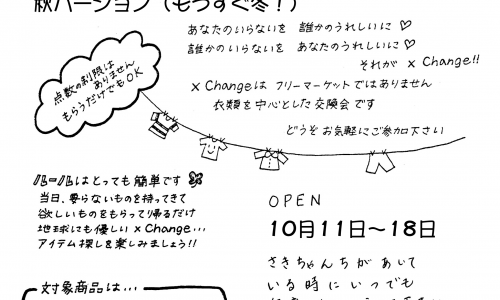 秋バージョン（もうすぐ冬！）
あなたのいらないを 誰かのうれしいに♡
誰かのいらないを あなたのうれしいに♡
それが × Change!!
点数の制限は
ありません
もらうだけでもOK
× Changeは フリーマーケットではありません
衣類を中心とした交換会です
どうぞ お気軽にご参加下さい
ルールはとっても簡単です
当日、要らないものを持ってきて
欲しいものをもらって帰るだけ
地球にも優しい × Change…
アイテム探しを楽しみましょう!!
OPEN
10月11日〜18日
さきちゃんちがあいて
いる時にいつでも
対象商品は…